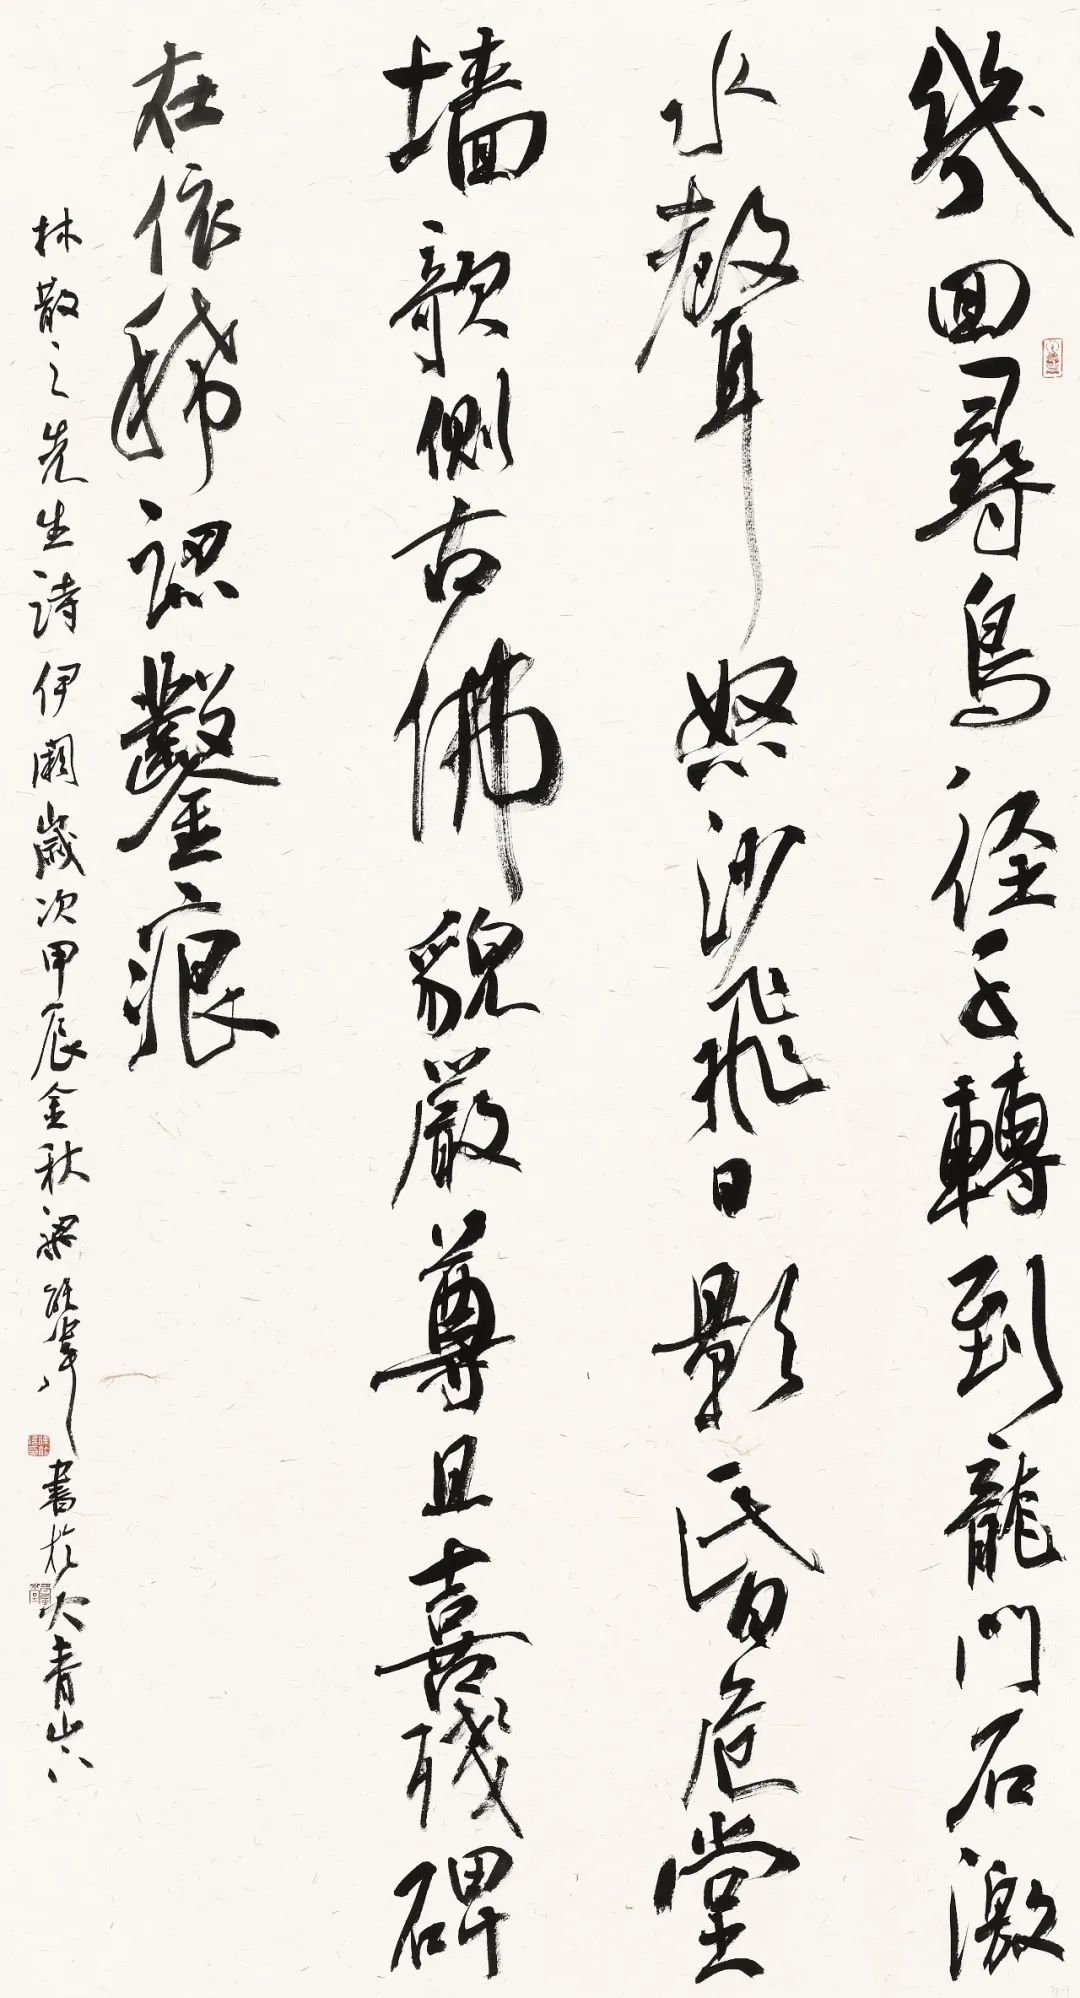 幾回尋鳥徑又轉到龍門石激
水聲怒沙飛日影昏危堂
墙歌側古佛貌嚴尊且喜殘碑
在依稀認鑿痕
林散之先生詩伊闕歲次甲辰金秋梁 書於大青山下